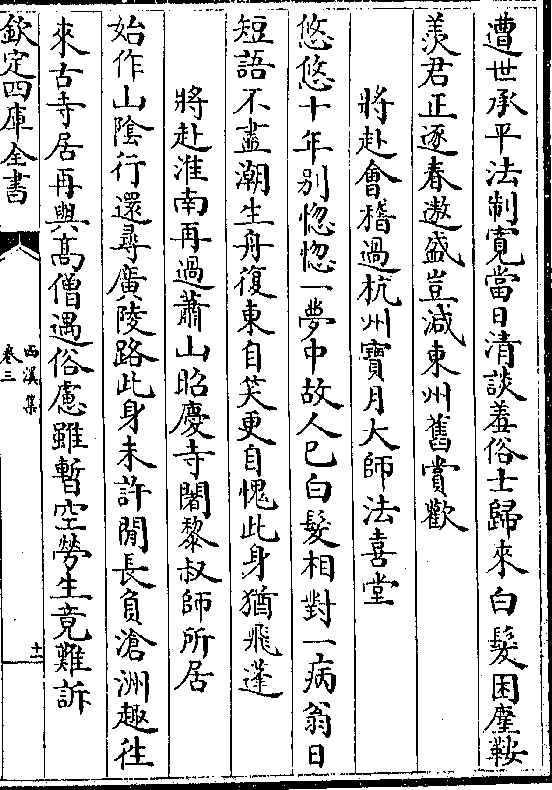 遭世承平法制寛當日清談羞俗士歸來白髮困塵鞍
羡君正逐春遨盛豈減東州舊賞歡
將赴會稽過杭州寶月大師法喜堂
悠悠十年别惚惚一夢中故人已白髮相對一病翁日
短語不盡潮生舟復東自笑更自愧此身猶飛蓬
將赴淮南再過蕭山昭慶寺闍黎叔師所居
始作山隂行還尋廣陵路此身未許閒長負滄洲趣往
來古寺居再與髙僧遇俗慮雖暫空勞生竟難訴
欽定四庫全書
西溪集
卷三
十一